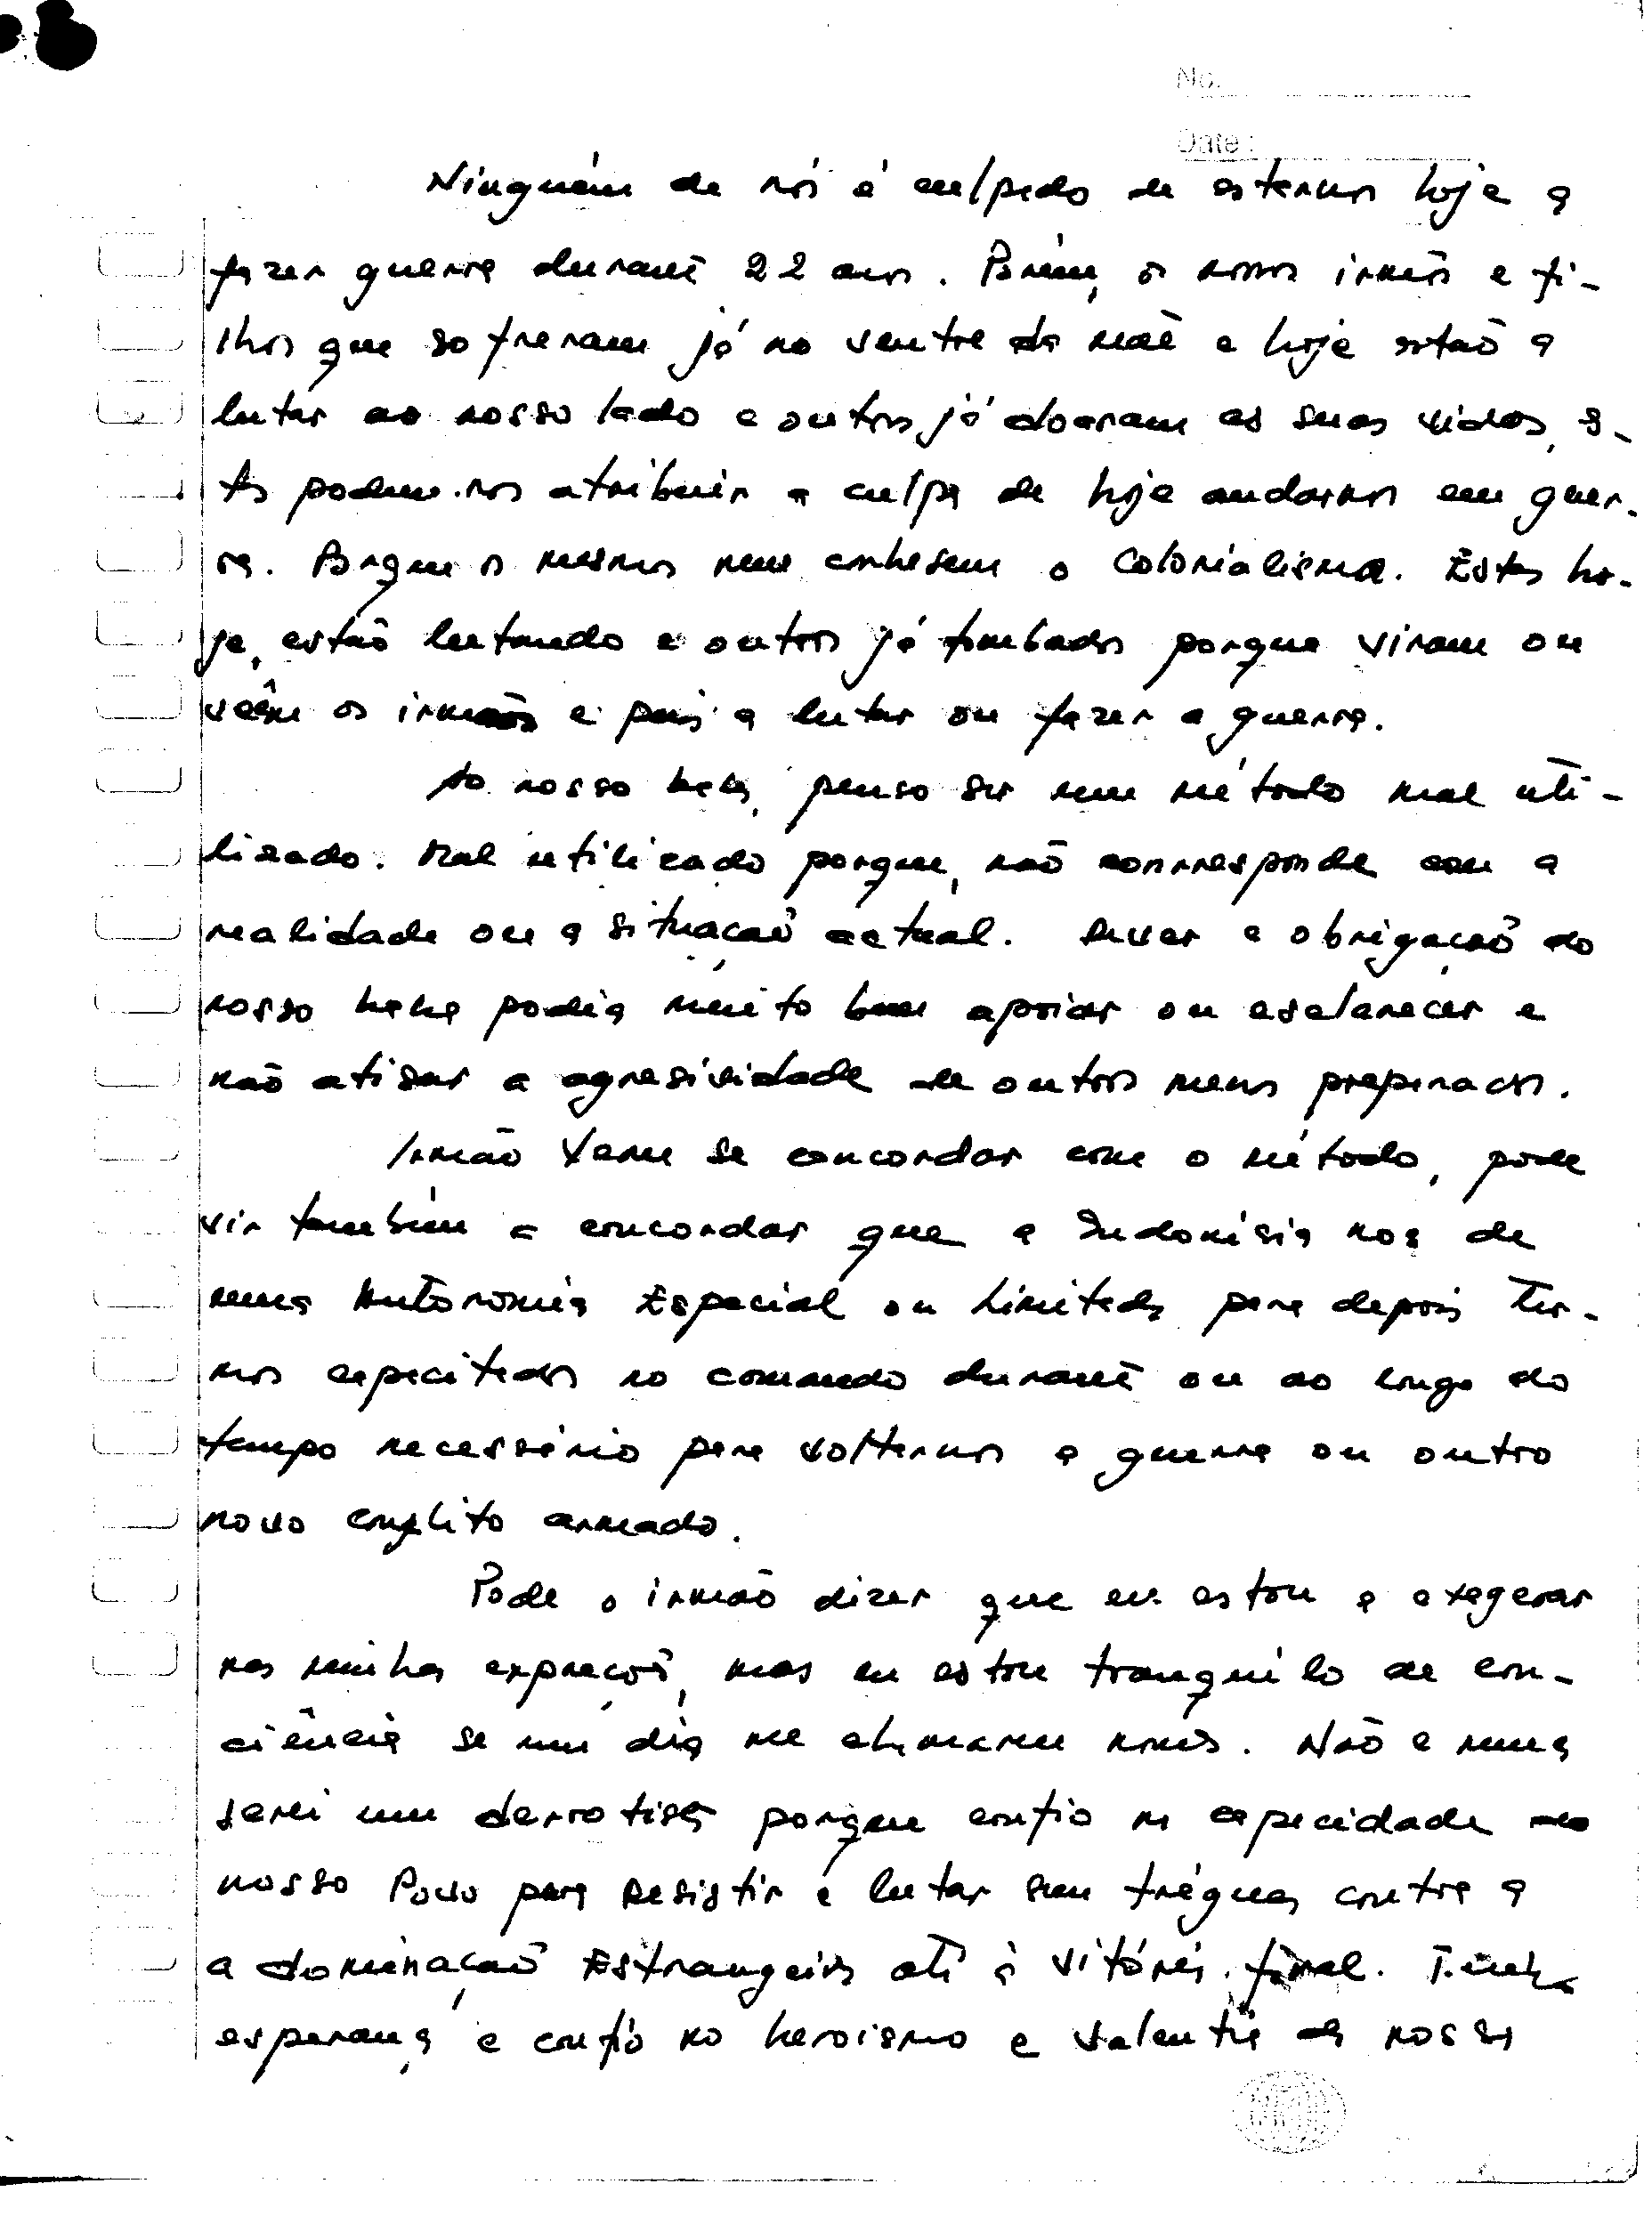 No.
Date:
Ninguém de nós é culpado de estarmos hoje a
fazer guerra durante 22 anos. Porém, os nossos irmãos e fi-
lhos que sofreram já no ventre da mãe e hoje estão a
lutar ao nosso lado e outros já doaram as suas vidas, es-
tes podem-nos atribuir a culpa de hoje andarmos em guer-
ra. Porque os mesmos nem conhesem o Colonialismo. Estes ho-
je, estão lutando e outros já tombados porque viram ou
veêm os irmãos e pais a lutar ou fazer a guerra.
Ao nosso penso ser um método mal uti-
lizado. Mal utilizado porque, não conrresponde com a
realidade ou a situação actual. Dever e obrigação do
nosso podia muito bem apoiar ou esclarecer e
não atisar a agresividade de outros menos preparados.
Irmão se concordar com o método, pode
vir também a concordar que a Indonésia nos de
uma Autonomia Especial ou Limitada para depois ter-
mos capacitados no comando durante ou ao longo do
tempo necessário para voltarmos a guerra ou outro
novo conflito armado.
Pode o irmão dizer que eu estou a exegerar
nas minhas expreções, mas eu estou tranquilo de con-
ciência se um dia me chamarem Não e nunca
serei um derrotista porque confio na capacidade do
nosso Povo para Resistir e lutar sem tréguas contra a
a dominação Estrangeira até à vitória final. Tenho
esperança e confio no heroismo e valentia da nossa